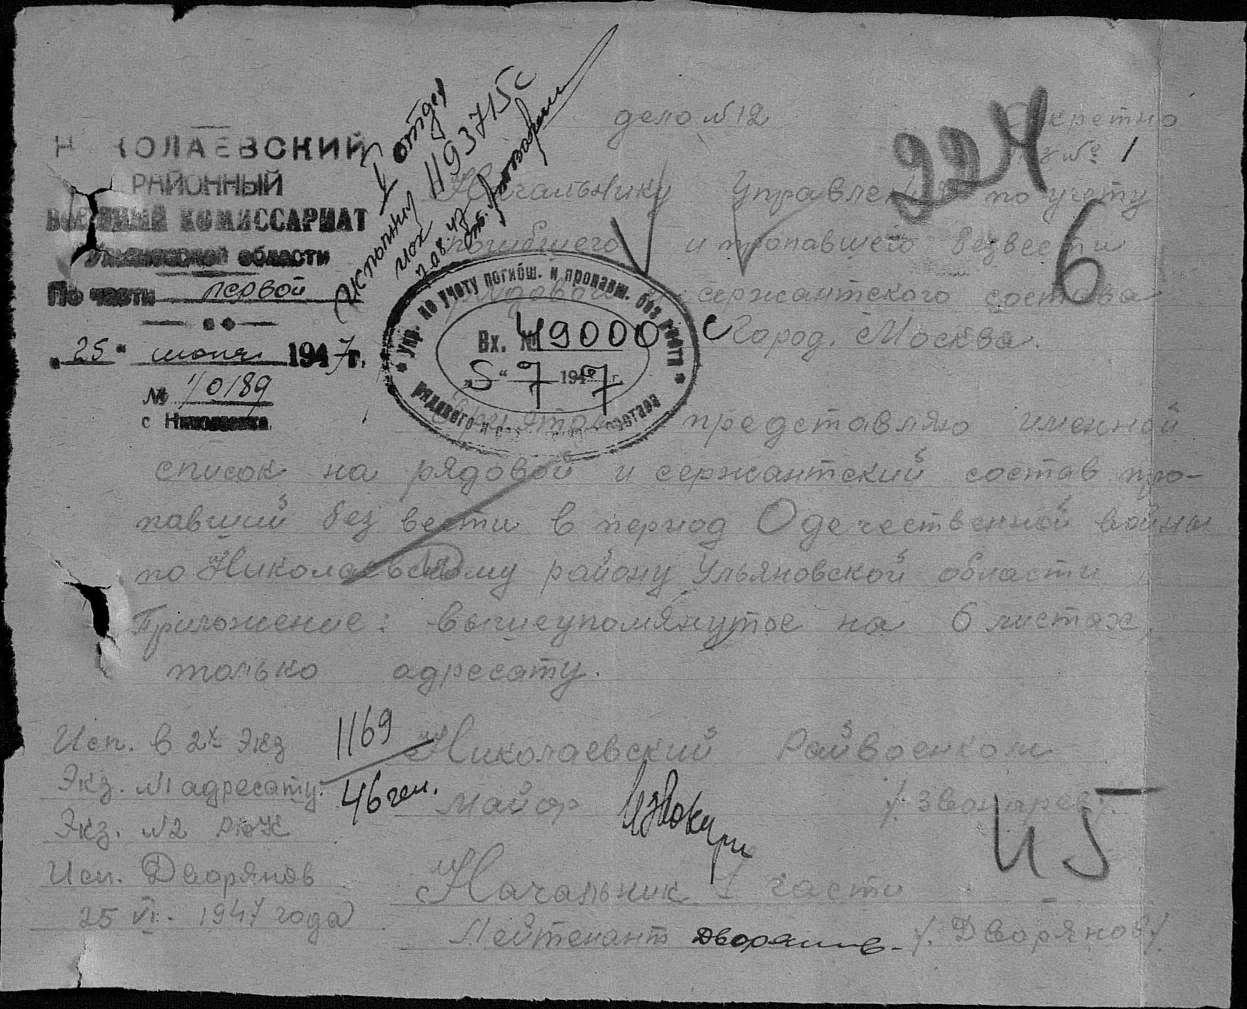 НИКОЛАЕВСКИЙ
РАЙОННЫЙ
ВОЕННЫЙ КОМИССАРИАТ
Ульяновской области
По части первой
"25" июня 1947 г.
№ 1/0189
с Николаевка
I отдел
1193715с
дело №12
Секретно
экз №1
224
6
Начальнику Управления по учету
погибшего и пропавшего безвести
рядового и сержантского состава
Город. Москва.
Упр. по учету погибш. и пропавш. без вести
Вх. № 49000 с
"5" 7 1947 г.
рядового и серж. состава
При этом представляю именной
список на рядовой и сержантский состав про-
павший без вести в период Отечественной войны
по Николаевскому району Ульяновской области
Приложение: вышеупомянутое на 6 листах,
только адресату.
Исп. в 2х экз
Экз. №1 адресату.
Экз. №2 РВК
Исп. Дворянов
25 VI. 1947 года
1169
46 чел.
Николаевский Райвоенком
майор
Начальник I части
Лейтенант Дворянов /. Дворянов /.
45